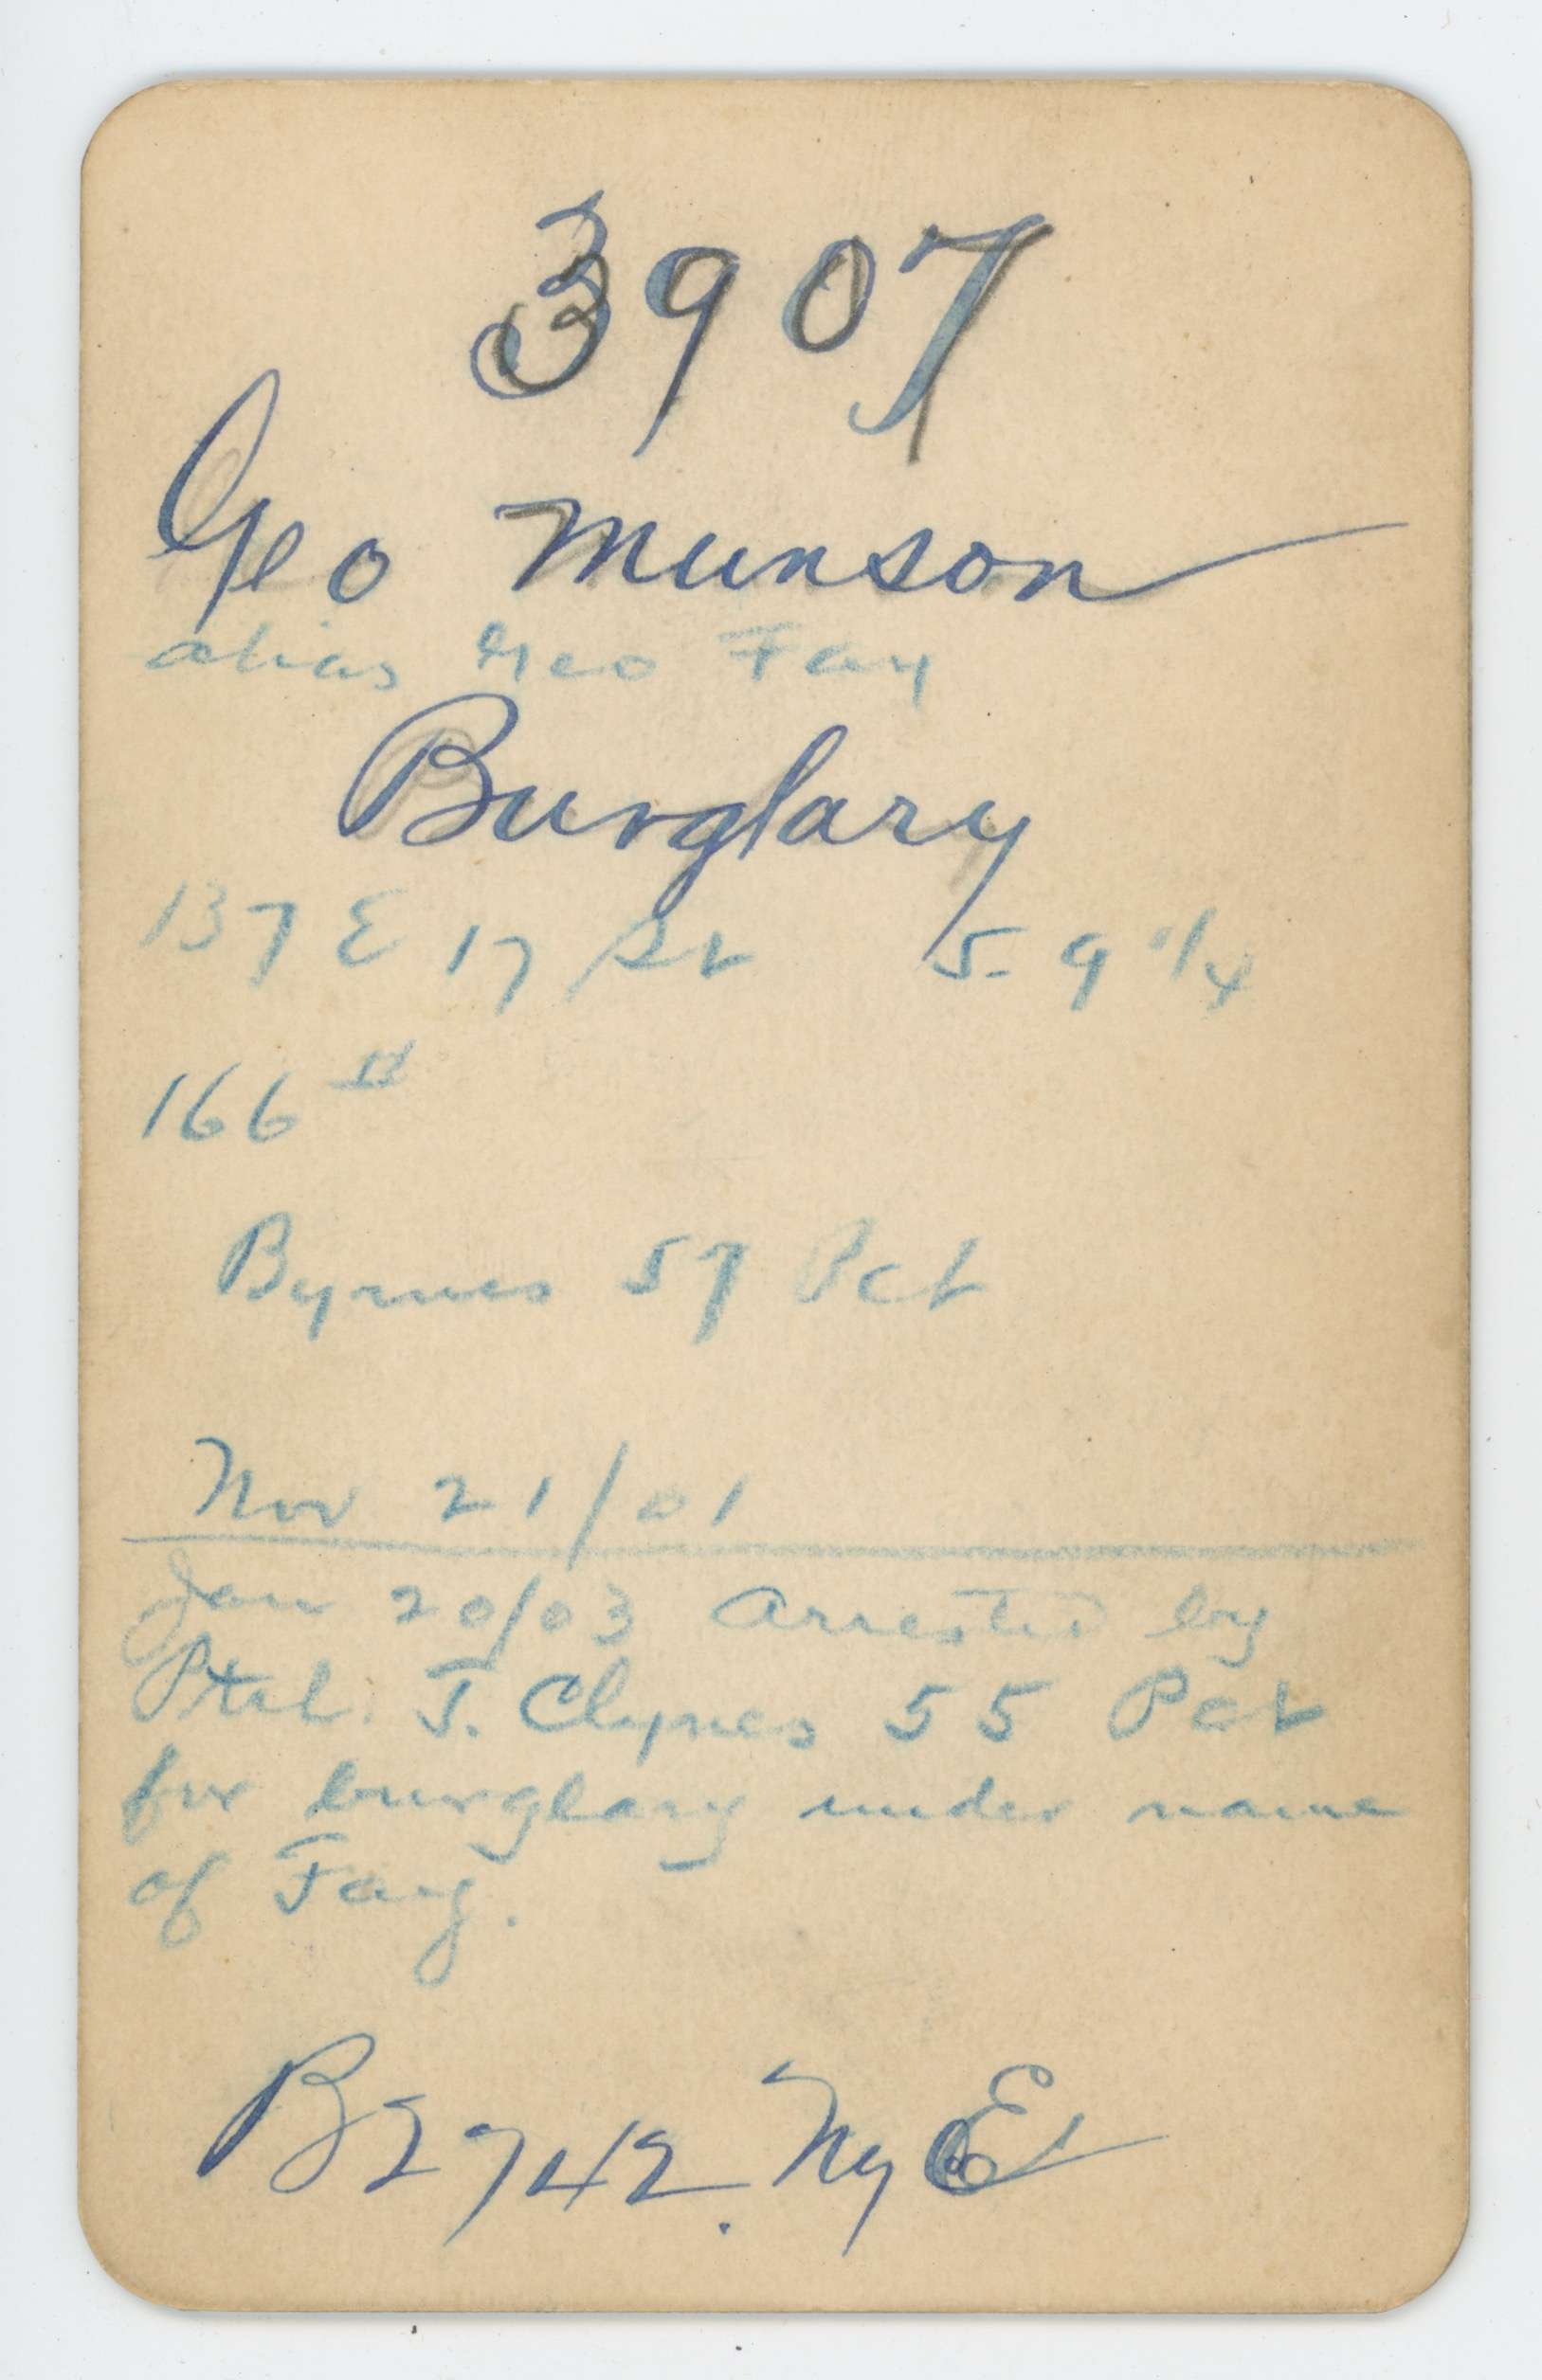 3907
Geo Munson
alias Geo Fay
Burglary
137 E 17 St 5-9 1/4
166 #
Byrnes 57 Pct
Nov 21/01
Jan 20/03 Arrested by
Ptrl. J. Clynes 55 Pct
for burglary under name
of Fay.
B2742. Ny